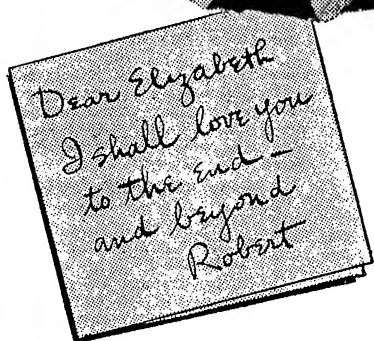 Dear Elizabeth
I shall love you
to the end —
and beyond
Robert